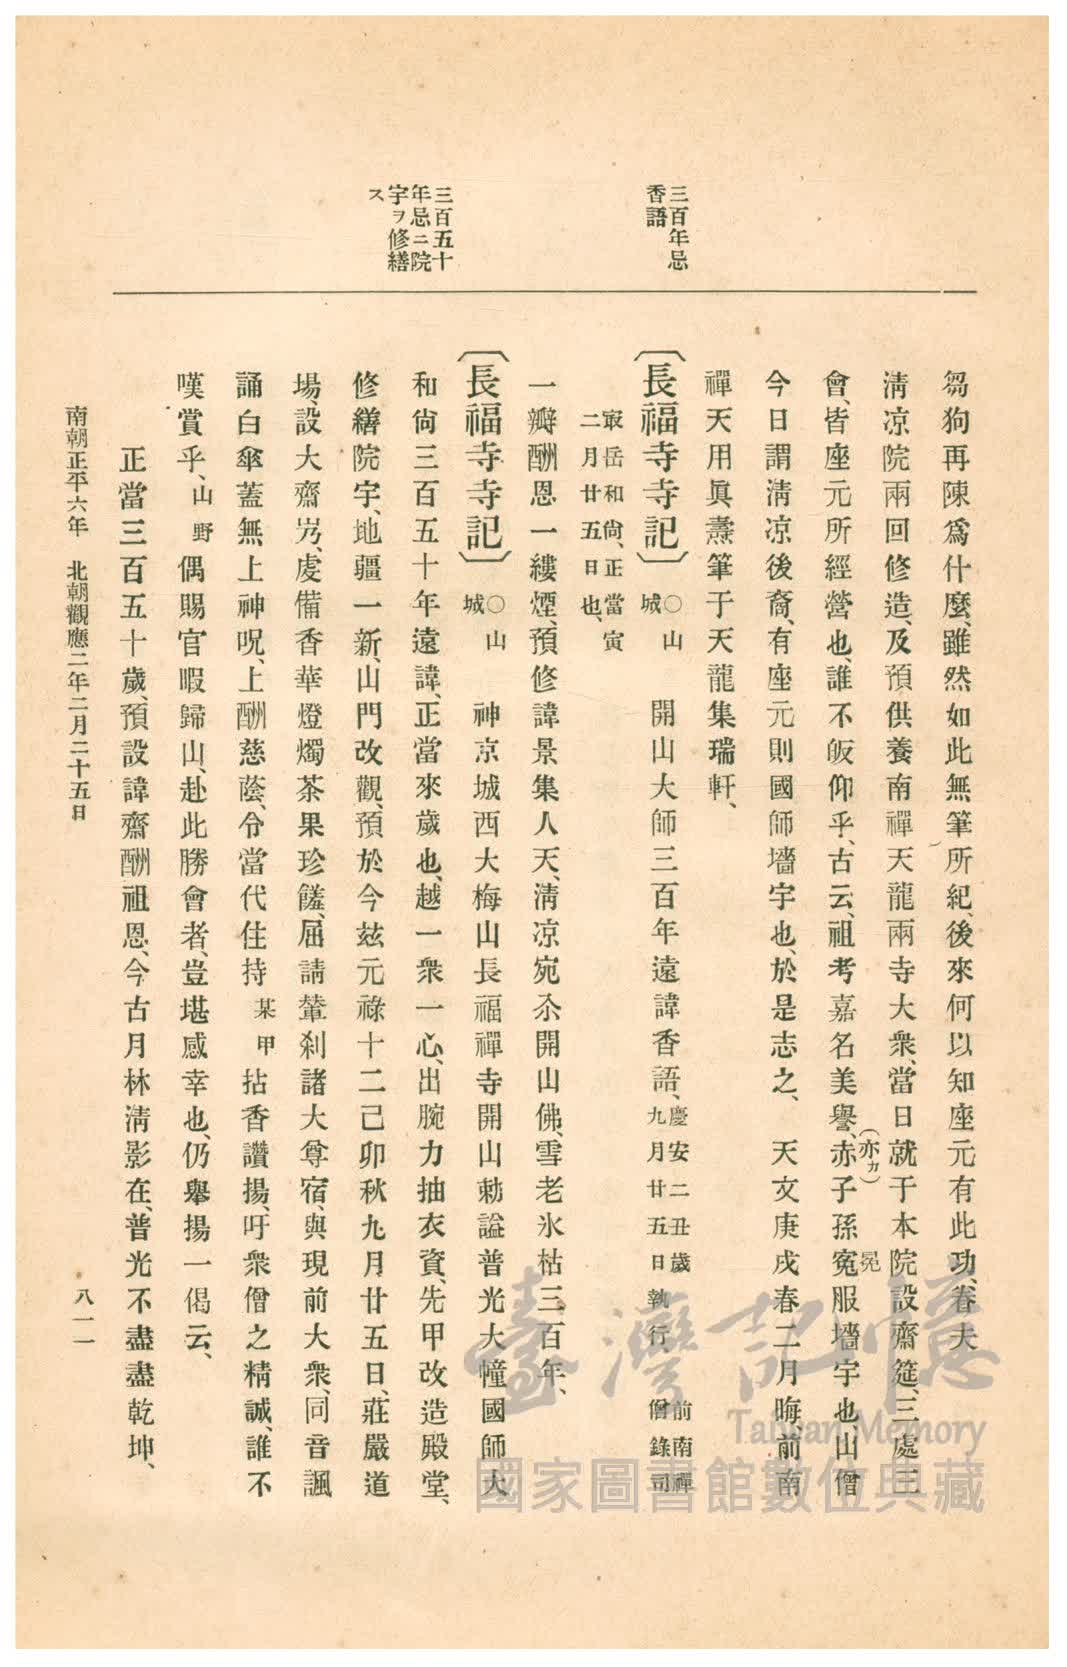 三百年忌
香語
三百五十
年忌ニ院
宇ヲ修繕
ス
芻狗再陳爲什麼、雖然如此無筆所紀、後來何以知座元有此功、春夫
淸凉院兩回修造、及預供養南禪天龍兩寺大衆、當日就于本院設齋筵、三處三
會、皆座元所經營也、誰不皈仰乎、古云、祖考嘉名美譽、赤(亦カ)子孫寃冕服墻宇也、山僧
今日謂淸凉後裔、有座元則國師墻宇也、於是志之、 天文庚戌春二月晦、前南
禪天用眞燾筆于天龍集瑞軒、
〔長福寺寺記〕 ○山城 開山大師三百年遠諱香語、慶安二丑歲九月廿五日執行 前南禪僧錄司
㝡岳和尙、正當寅
二月廿五日也、
一瓣酬恩一縷煙、預修諱景集人天、淸凉宛尒開山佛、雪老氷枯三百年、
〔長福寺寺記〕 ○山城 神京城西大梅山長福禪寺開山勅謚普光大幢國師大
和尙三百五十年遠諱、正當來歲也、越一衆一心、出腕力抽衣資、先甲改造殿堂、
修繕院宇、地疆一新、山門改觀、預於今玆元祿十二己卯秋九月廿五日、莊嚴道
場、設大齋岃、虔備香華燈燭茶果珍饈、屈請輦刹諸大尊宿、與現前大衆、同音諷
誦白傘蓋無上神呪、上酬慈蔭、令當代住持某甲拈香讚揚、吁衆僧之精誠、誰不
嘆賞乎、山野偶賜官暇歸山、赴此勝會者、豈堪感幸也、仍擧揚一偈云、
正當三百五十歲、預設諱齋酬祖恩、今古月林淸影在、普光不盡盡乾坤、
南朝正平六年 北朝觀應二年二月二十五日
八一一
臺灣記憶
Taiwan Memory
國家圖書館數位典藏